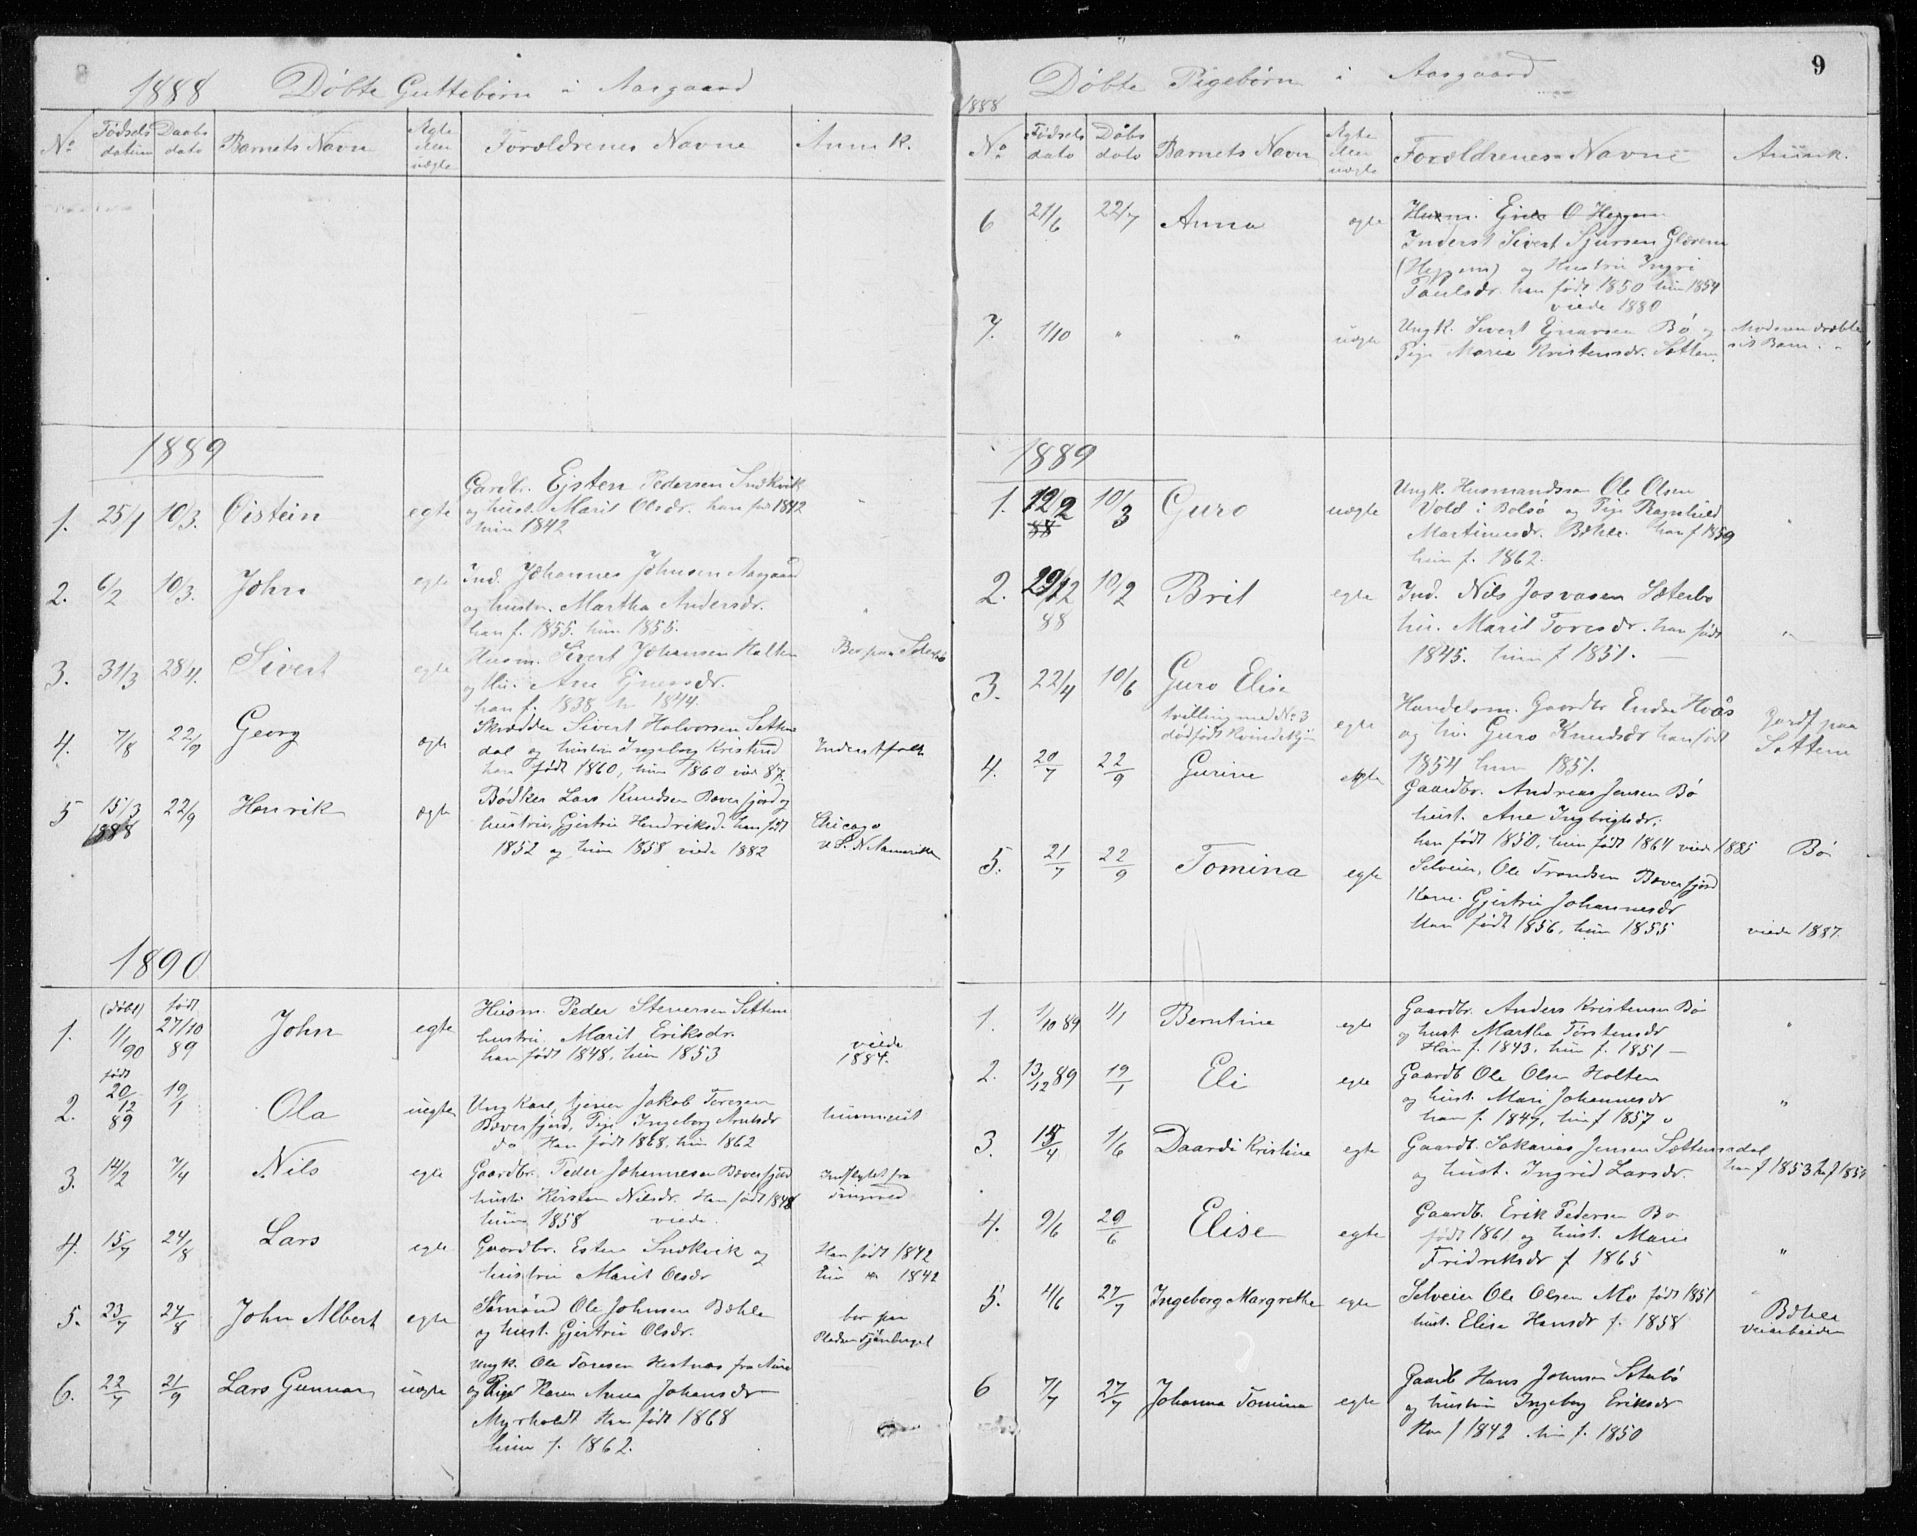 8
1888 Døbte Guttebørn i Aasgaard
No Fødsels datum Daabs dato Barnets Navn Ægte eller uægte Forældrenes Navne Anm k.
1889
1. 25/1 10/3. Østein egte Gardbr. Ejsten Pedersen Sndkvik
og hust. Marit Olsdr. han født 1842
hun 1842
2. 6/2 10/3. John egte Ind. Johannes Johnsen Aasgaard
og hustr. Martha Andersdr.
han f. 1855. hun 1855.
3. 31/3 28/4. Sivert egte Husm. Sivert Johansen Holten
og Hu. Ane
han f. 1838 h 1844.
Bor paa
4. 7/8 22/9 Georg egte Skrædder Sivert Halvorsen Settem
dal og hustru Ingeborg Kristensd
han født 1860, hun 1860 viet 87.
5 15/3 1888 22/9 Henrik egte Bødker Lars Knudsen Bæverfjord og
hustru Gjertru Hendriksd. han født
1852 og hun 1858 viede 1882
Chicago
N. Amerika
1890
1. (døbt) 1/1 90 født 27/10 89 John egte Husm. Peder Sivertsen Settem
hustru Marit Eriksdr.
han født 1848, hun 1853
viede
1884.
2. født 20/12 89 19/1 Ola uegte Ungkarl, tjener Jakob Toresen
Bæverfjord, Pige Ingeborg Arntsdr
do Han født 1868, hun 1862
3. 14/2 7/4 Nils egte Gaardbr. Peder Johannesen Bæverfjord
hustr. Kirsten Nilsdr. Han født 1848
hun 1858 viede.
Indflyttet fra
4. 15/7 24/8 Lars egte Gaardbr. Esten Sndkvik og
hustru Marit Olsdr
Han født 1842
hun 1842
5. 23/7 24/8 John Albert egte Sømand Ole Johnsen Bæhle
og hust. Gjertru Olsdr.
bor paa
Pladsen
6. 22/7 21/9 Lars Gunnar uegte Ungk. Ole Toresen Hestnæs fra Aure
og Pige Karen Anna Johansdr
Myrholdt Han født 1868
hun f. 1862.
9
1888 Døbte Pigebørn i Aasgaard
No Fødsels dato Døbs dato Barnets Navn Ægte eller uægte Forældrenes Navne Anmk.
6 21/6 22/7 Anna egte Husm. O Heggem
Inderst Sivert Sjursen Glærem
(Heggem) og Hustru Ingri
Paulsdr. han født 1850 hun 1854
viede 1880
7. 1/10 " " uegte Ungk. Sivert Ejnarsen Bø og
Pige Marie Kristensdr. Settem.
Moderen dræbte
sit Barn.
1889
1. 12/2 88 10/3 Guro uegte Ungk. Husmandssøn Ole Olsen
Vold i Bolsø og Pige Ragnhild
Martinusdr. Bæhle. han f 1859
hun f. 1862.
2. 29/12 88 10/2 Brit egte Ind. Nils Josvasen Sæterbø
hu. Marit Toresdr. han født
1845. hun f 1851.
3. 22/4 10/6 Guro Elise
tvilling med No 3
dødfødt Kvindekjøn egte Handelsm. Gaardbr Endre Hvaas
og hu. Guro Knudsdr han født
1854 hun 1851.
Gardf paa
Settem
4. 20/7 22/9 Gurine egte Gaardbr. Andreas Jensen Bø
hust. Ane Ingbrigtsdr.
han født 1850, hun født 1864 viede 1885
Bø
5. 21/7 22/9 Tomina egte Selveier, Ole Trondsen Bæverfjord
Kone. Gjertru Johannesdr
Han født 1856, hun 1855
viede 1887.
1. 1/10 89 1/1 Berntine egte Gaardbr. Anders Kristensen Bø
og hust. Martha Torstensdr
Han f. 1843, hun f. 1851
"
2. 13/12 89 19/1 Eli egte Gaardb Ole Olsen Holten
og hust. Mari Johannesdr
han f. 1847, hun f 1857
"
3. 15/4 1/6 Daardi Kristine egte Gaardb. Sakarias Jensen Settemsdal
og hust. Ingrid Larsdr.
han f 1853 h. f 1854
4. 9/6 29/6 Elise egte Gaardb. Erik Pedersen Bø
født 1861 og hust. Marie
Fridriksdr f 1865
"
5. 4/6 27/7 Ingeborg Margrethe egte Selveier Ole Olsen Mo født 1851
hust. Elise Hansdr f. 1858
Bæhle
Veiarbeider
6 7/7 27/7 Johanna Tomine egte Gaardb Hans Johnsen Setebø
og hustru Ingeborg Eriksdr
Han f 1842 hun f. 1850